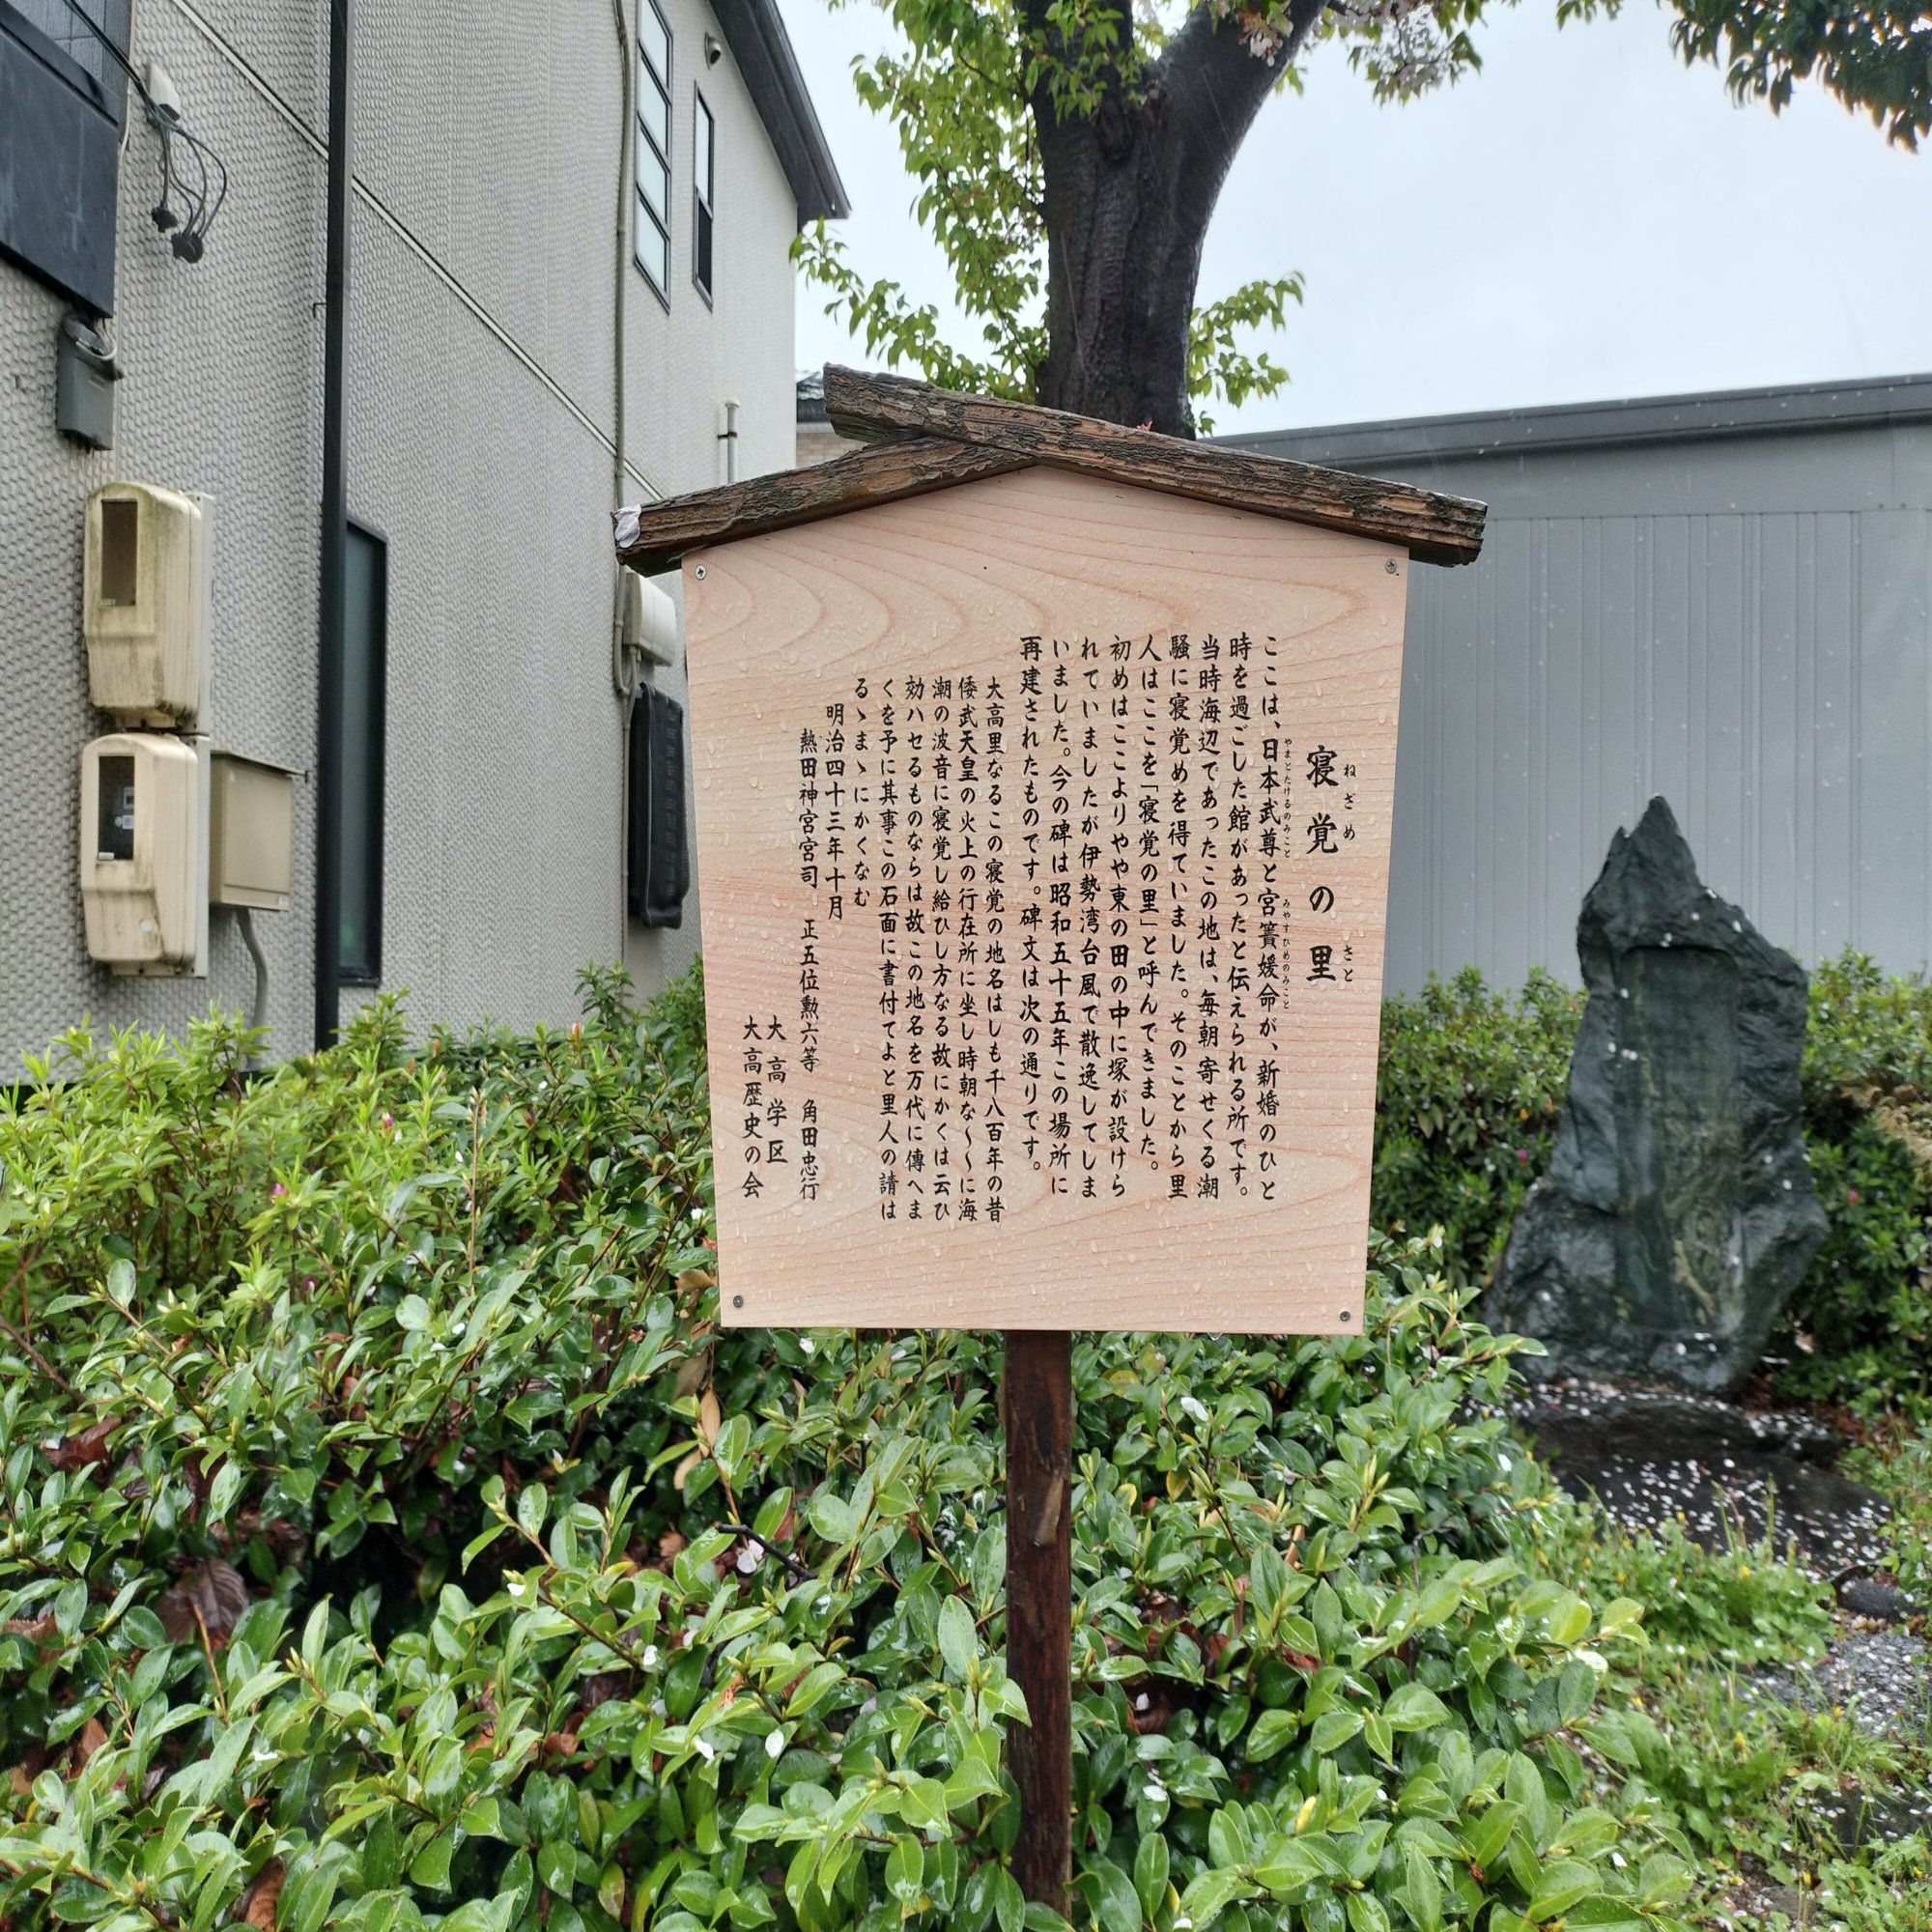 寝覚の里
ねざめ さと
ここは、日本武尊と宮簀媛命が、新婚のひと
やまとたけるのみこと みやすひめのみこと
時を過ごした館があったと伝えられる所です。
当時海辺であったこの地は、毎朝寄せくる潮
騒に寝覚めを得ていました。そのことから里
人はここを「寝覚の里」と呼んできました。
初めはここよりやや東の田の中に塚が設けら
れていましたが伊勢湾台風で散逸してしま
いました。今の碑は昭和五十五年この場所に
再建されたものです。碑文は次の通りです。
大高里なるこの寝覚の地名はしも千八百年の昔
倭武天皇の火上の行在所に坐し時朝な〱に海
潮の波音に寝覚し給ひし方なる故にかくは云ひ
効ハせるものならは故この地名を万代に傳へま
くを予に其事この石面に書付てよと里人の請は
るゝまゝにかくなむ
明治四十三年十月
熱田神宮宮司 正五位勲六等 角田忠行
大高学区
大高歴史の会